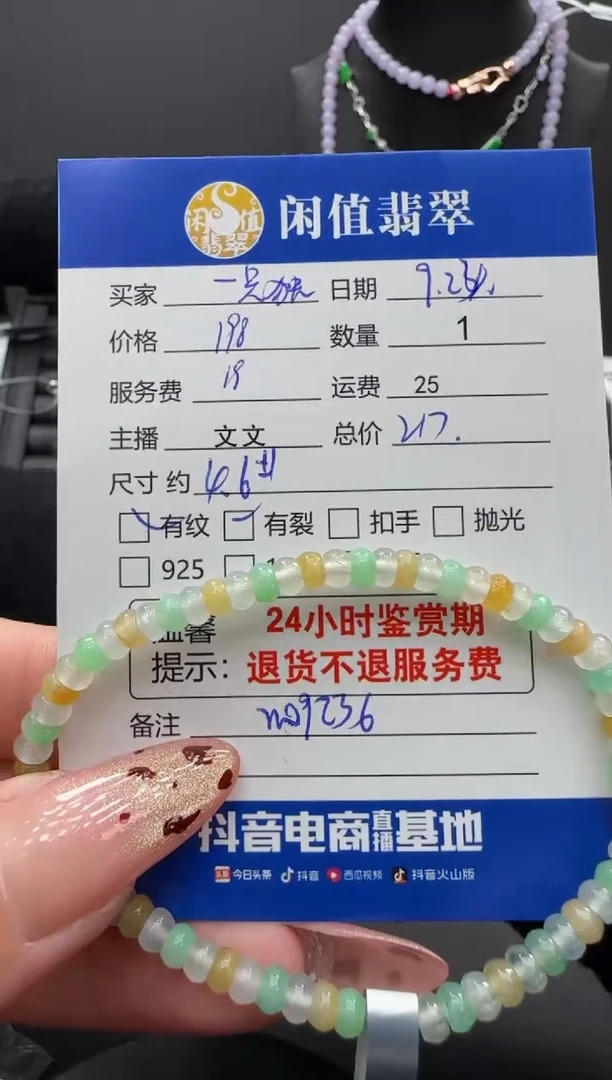 闲值翡翠
闲值翡翠
买家 日期 9.23
价格 198 数量 1
服务费 19 运费 25
主播 文文 总价 217.
尺寸 约 4.6
有纹 有裂 扣手 抛光
925
温馨 24小时鉴赏期
提示: 退货不退服务费
备注 no9236
抖音电商直播基地
头条 今日头条 抖音 西瓜视频 抖音火山版